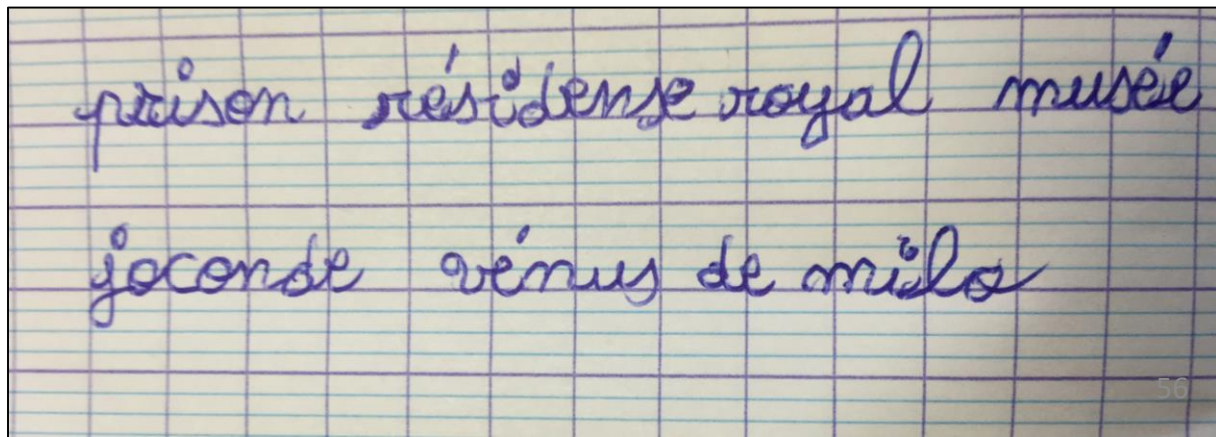 prison résidense royal musée
joconde vénus de milo
56